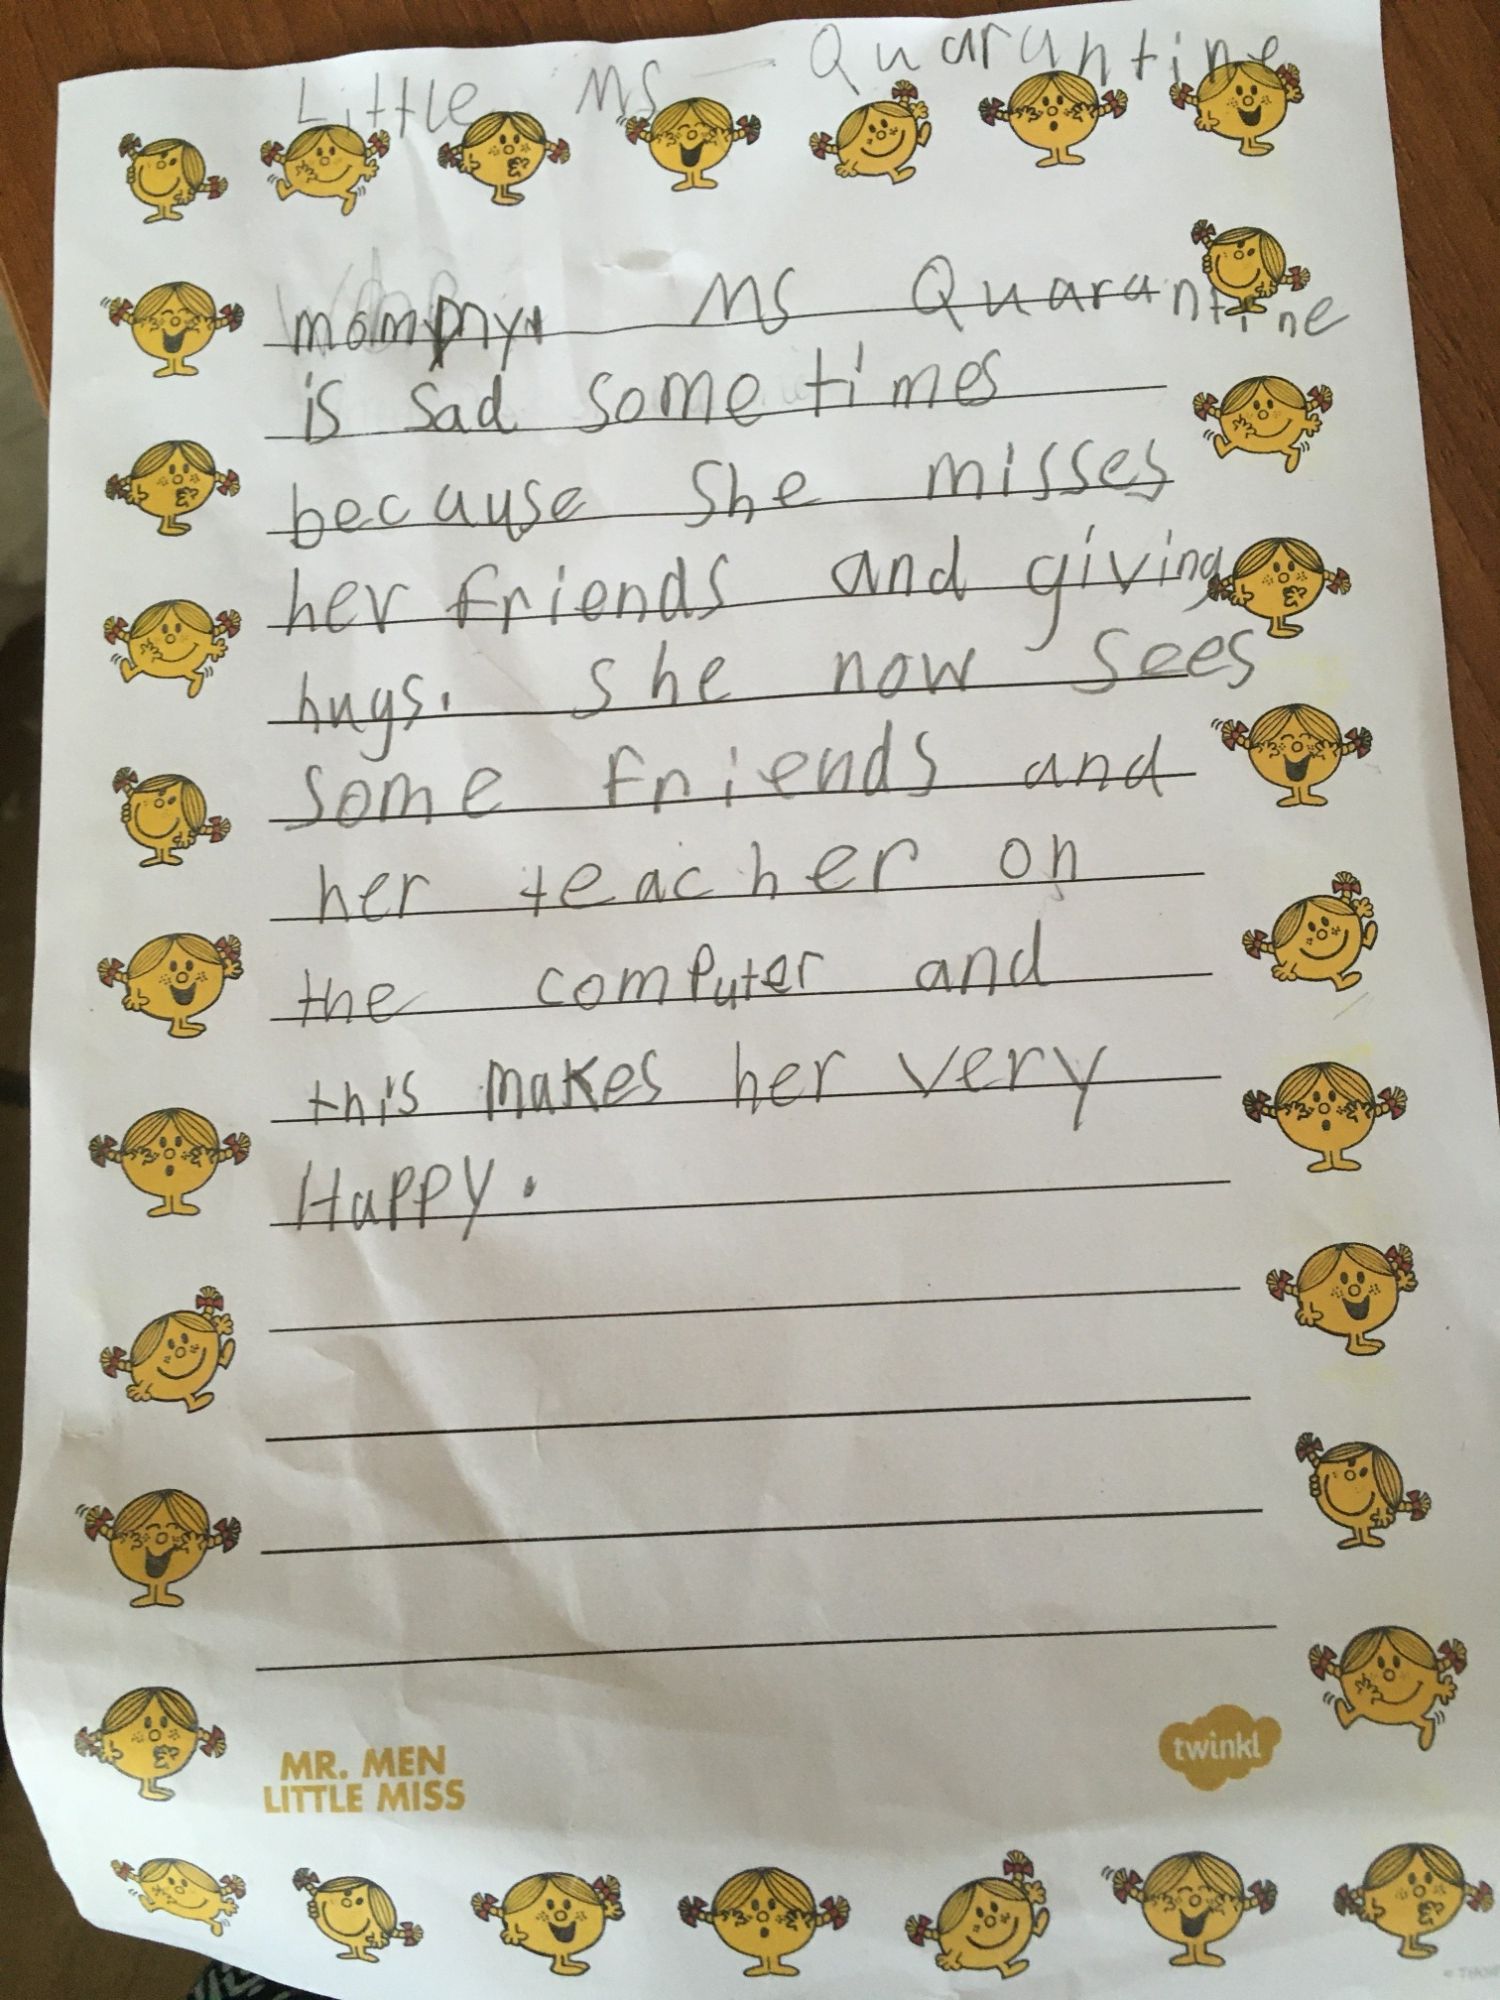 Little Ms Quarantine
mommy Ms Quarantine
is sad sometimes
because she misses
her friends and giving
hugs. she now sees
some friends and
her teacher on
the computer and
this makes her very
Happy.
MR. MEN
LITTLE MISS
twinkl